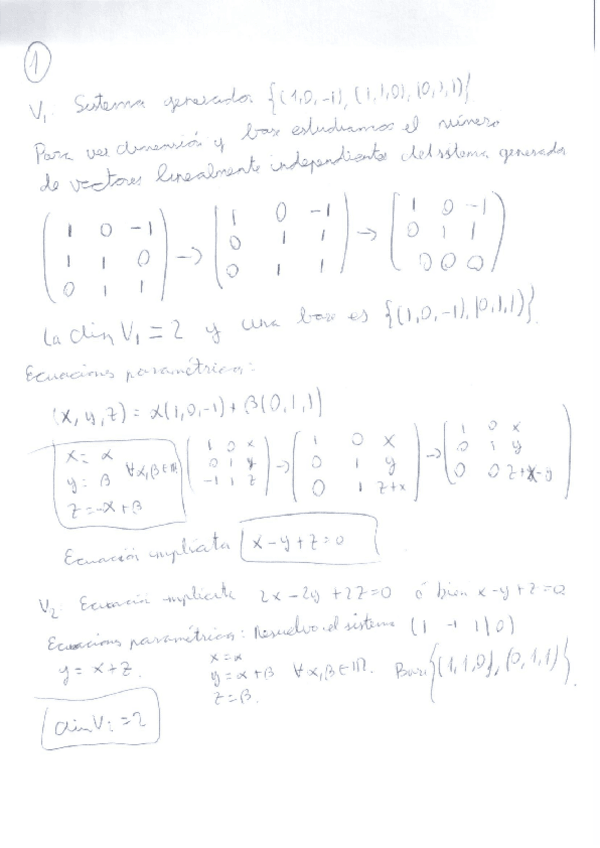 1
V₁ Sistema generador {(1,0,-1), (1,1,0), (0,1,1)}
Para ver dimensión y base estudiamos el número
de vectores linealmente independiente del sistema generador
(1 0 -1; 1 1 0; 0 1 1) → (1 0 -1; 0 1 1; 0 1 1) → (1 0 -1; 0 1 1; 0 0 0)
La dim V₁ = 2 y una base es {(1,0,-1), (0,1,1)}
Ecuaciones paramétricas:
(x, y, z) = α(1,0,-1) + β(0,1,1)
x = α
y = β ∀α,β∈ℝ
z = -x + β
(1 0 x; 0 1 y; -1 1 z) → (1 0 x; 0 1 y; 0 1 z+x) → (1 0 x; 0 1 y; 0 0 z+x-y)
Ecuación implícita x - y + z = 0
V₂: Ecuación implícita 2x - 2y + 2z = 0 ó bien x - y + z = 0
Ecuaciones paramétricas: Resuelvo el sistema (1 -1 1|0)
y = x + z.
x = α
y = α + β ∀α,β∈ℝ.
z = β.
Base {(1,1,0), (0,1,1)}.
dim V₂ = 2